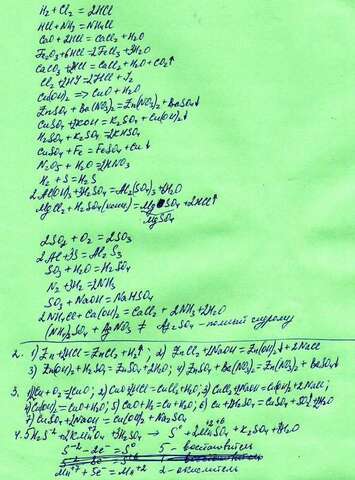 H₂ + Cl₂ = 2HCl
HCl + NH₃ = NH₄Cl
CaO + 2HCl = CaCl₂ + H₂O
Fe₂O₃ + 6HCl = 2FeCl₃ + 3H₂O
CaCO₃ + 2HCl = CaCl₂ + H₂O + CO₂↑
Cl₂ + 2HI = 2HCl + I₂
Cu(OH)₂ => CuO + H₂O
ZnSO₄ + Ba(NO₃)₂ = Zn(NO₃)₂ + BaSO₄↓
CuSO₄ + 2KOH = K₂SO₄ + Cu(OH)₂↓
H₂SO₄ + K₂SO₄ = 2KHSO₄
CuSO₄ + Fe = FeSO₄ + Cu↓
N₂O₅ + H₂O = 2HNO₃
H₂ + S = H₂S
2Al(OH)₃ + 3H₂SO₄ = Al₂(SO₄)₃ + 6H₂O
MgCl₂ + H₂SO₄ (конц) = MgSO₄ + 2HCl↑
MgSO₄
2SO₂ + O₂ = 2SO₃
2Al + 3S = Al₂S₃
SO₃ + H₂O = H₂SO₄
N₂ + 3H₂ = 2NH₃
SO₃ + NaOH = NaHSO₄
2NH₄Cl + Ca(OH)₂ = CaCl₂ + 2NH₃ + 2H₂O
(NH₄)₂SO₄ + AgNO₃ ≠ Ag₂SO₄ -
2. 1) Zn + 2HCl = ZnCl₂ + H₂↑; 2) ZnCl₂ + 2NaOH = Zn(OH)₂↓ + 2NaCl
3) Zn(OH)₂ + H₂SO₄ = ZnSO₄ + 2H₂O; 4) ZnSO₄ + Ba(NO₃)₂ = Zn(NO₃)₂ + BaSO₄↓
3. 1) 2Cu + O₂ = 2CuO; 2) CuO + 2HCl = CuCl₂ + H₂O; 3) CuCl₂ + 2NaOH = Cu(OH)₂ + 2NaCl;
4) Cu(OH)₂ = CuO + H₂O; 5) CuO + H₂ = Cu + H₂O; 6) Cu + 2H₂SO₄ = CuSO₄ + SO₂↑ + 2H₂O
7) CuSO₄ + 2NaOH = Cu(OH)₂ + Na₂SO₄
4. 5H₂S⁻² + 2KMn⁺⁷O₄ + 3H₂SO₄ → S⁰ + 2Mn⁺²SO₄ + K₂SO₄ + 8H₂O
S⁻² - 2e⁻ = S⁰ 5 - восстановитель
Mn⁺⁷ + 5e⁻ = Mn⁺² 2 - окислитель